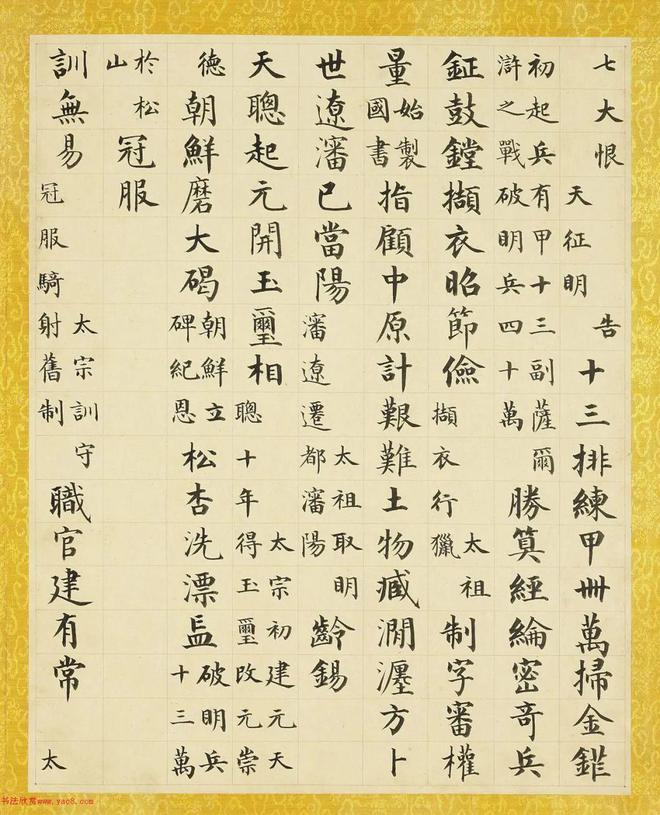 七大恨告天征明十三排練甲卌萬掃金錐
初起兵有甲十三副薩爾滸之戰破明兵四十萬勝算經綸密奇兵
鉦鼓鏜擷衣昭節儉太祖擷衣行獵制字審權
量始製國書指顧中原計艱難土物臧澗瀍方卜
世遼瀋已當陽太祖取明瀋遼遷都瀋陽齡錫
天聰起元開玉璽相太宗初建元天聰十年得玉璽改元崇
德朝鮮磨大碣朝鮮立碑紀恩松杏洗漂衁破明兵十三萬
於松山冠服
訓無易太宗訓守冠服騎射舊制職官建有常太
书法欣赏www.yac8.com